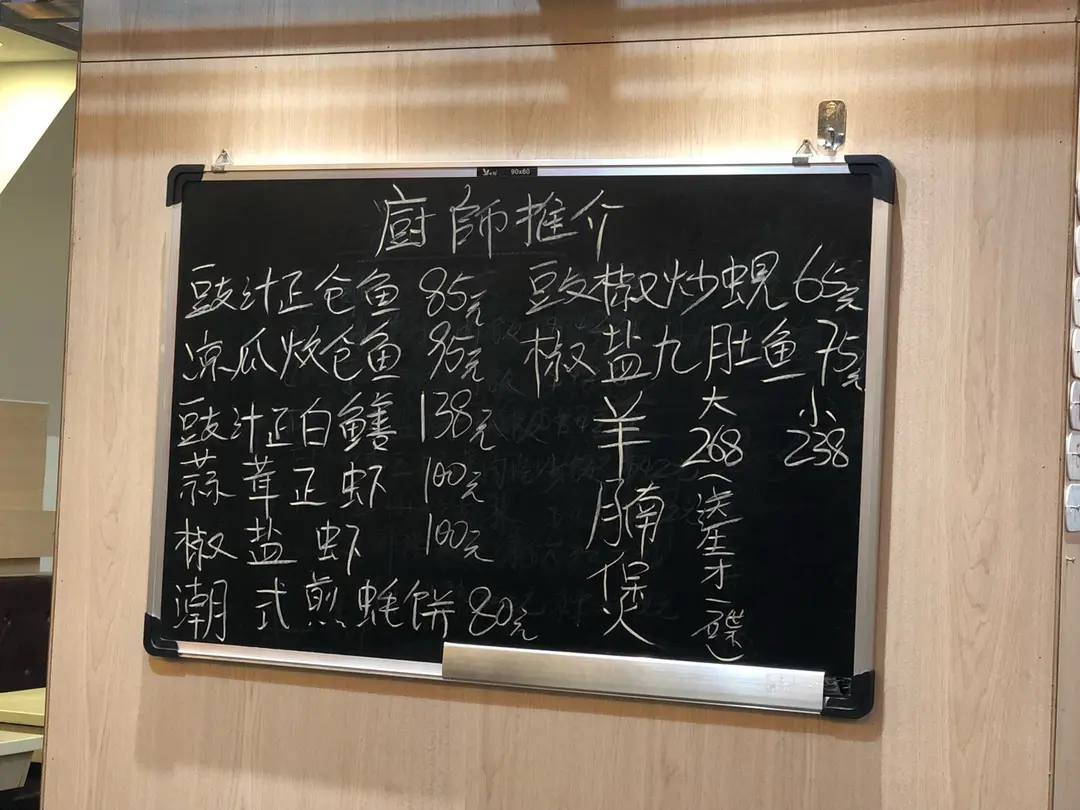 90x60
廚師推介
豉汁正仓鱼 85元
凉瓜炆仓鱼 95元
豉汁正白鱔 138元
蒜茸正虾 100元
椒盐虾 100元
潮式煎蚝餅 80元
豉椒炒蜆 65元
椒盐九肚鱼 75元
羊腩煲
大 小
268 238
(送生才一碟)